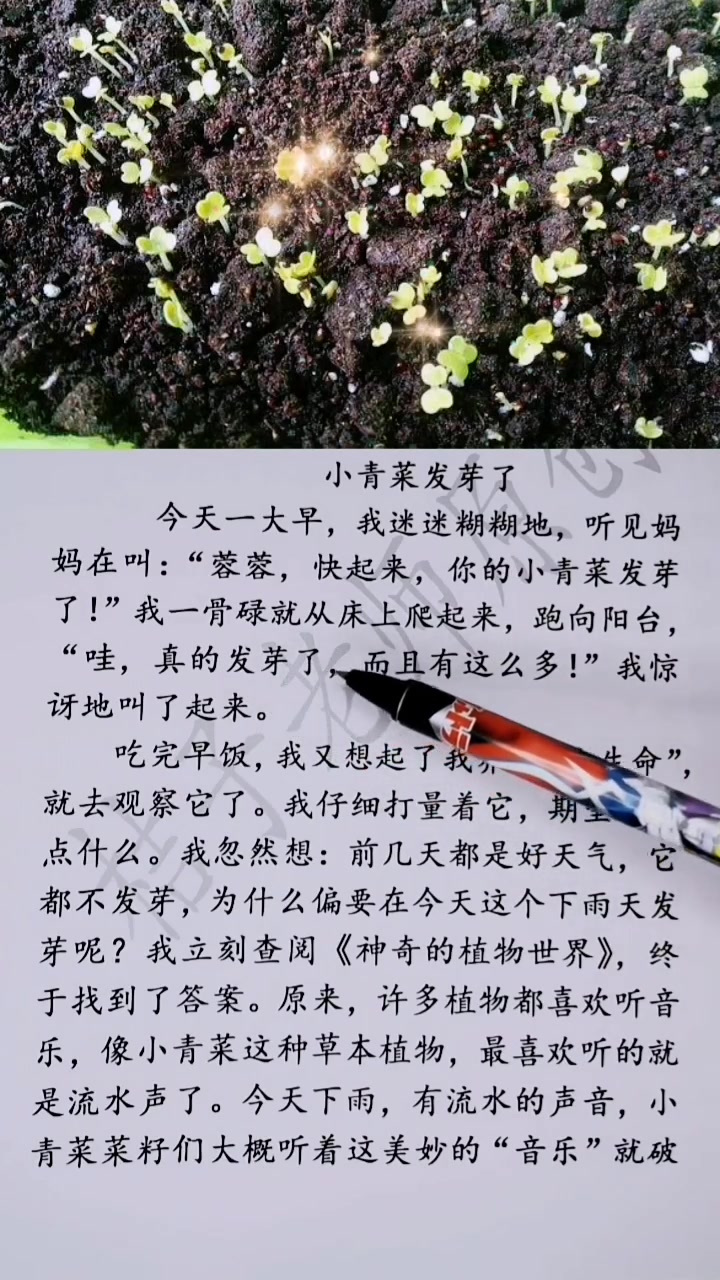 小青菜发芽了
今天一大早，我迷迷糊糊地，听见妈
妈在叫：“蓉蓉，快起来，你的小青菜发芽
了！”我一骨碌就从床上爬起来，跑向阳台，
“哇，真的发芽了，而且有这么多！”我惊
讶地叫了起来。
吃完早饭，我又想起了我 生命”，
就去观察它了。我仔细打量着它，期
点什么。我忽然想：前几天都是好天气，它
都不发芽，为什么偏要在今天这个下雨天发
芽呢？我立刻查阅《神奇的植物世界》，终
于找到了答案。原来，许多植物都喜欢听音
乐，像小青菜这种草本植物，最喜欢听的就
是流水声了。今天下雨，有流水的声音，小
青菜菜籽们大概听着这美妙的“音乐”就破
桔子老师原创